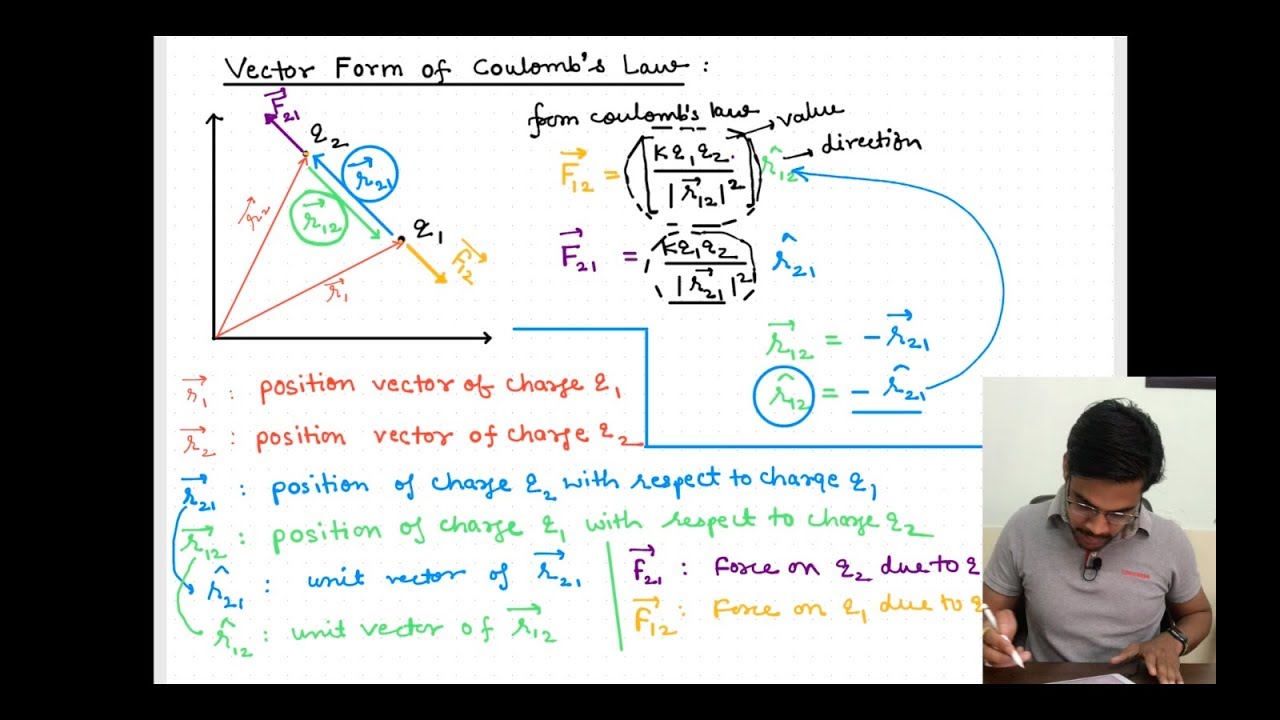 Vector Form of Coulomb's Law :
F⃗₂₁
q₂
r⃗₂₁
r⃗₁₂
r⃗₂
q₁
r⃗₁
form coulomb's law
value
direction
F⃗₁₂ = [kq₁q₂ / |r⃗₁₂|²] r̂₁₂
F⃗₂₁ = kq₁q₂ / |r⃗₂₁|² r̂₂₁
r⃗₁₂ = - r⃗₂₁
r̂₁₂ = - r̂₂₁
r⃗₁ : position vector of charge q₁
r⃗₂ : position vector of charge q₂
r⃗₂₁ : position of charge q₂ with respect to charge q₁
r⃗₁₂ : position of charge q₁ with respect to charge q₂
r̂₂₁ : unit vector of r⃗₂₁
r̂₁₂ : unit vector of r⃗₁₂
F⃗₂₁ : Force on q₂ due to q
F⃗₁₂ : Force on q₁ due to q